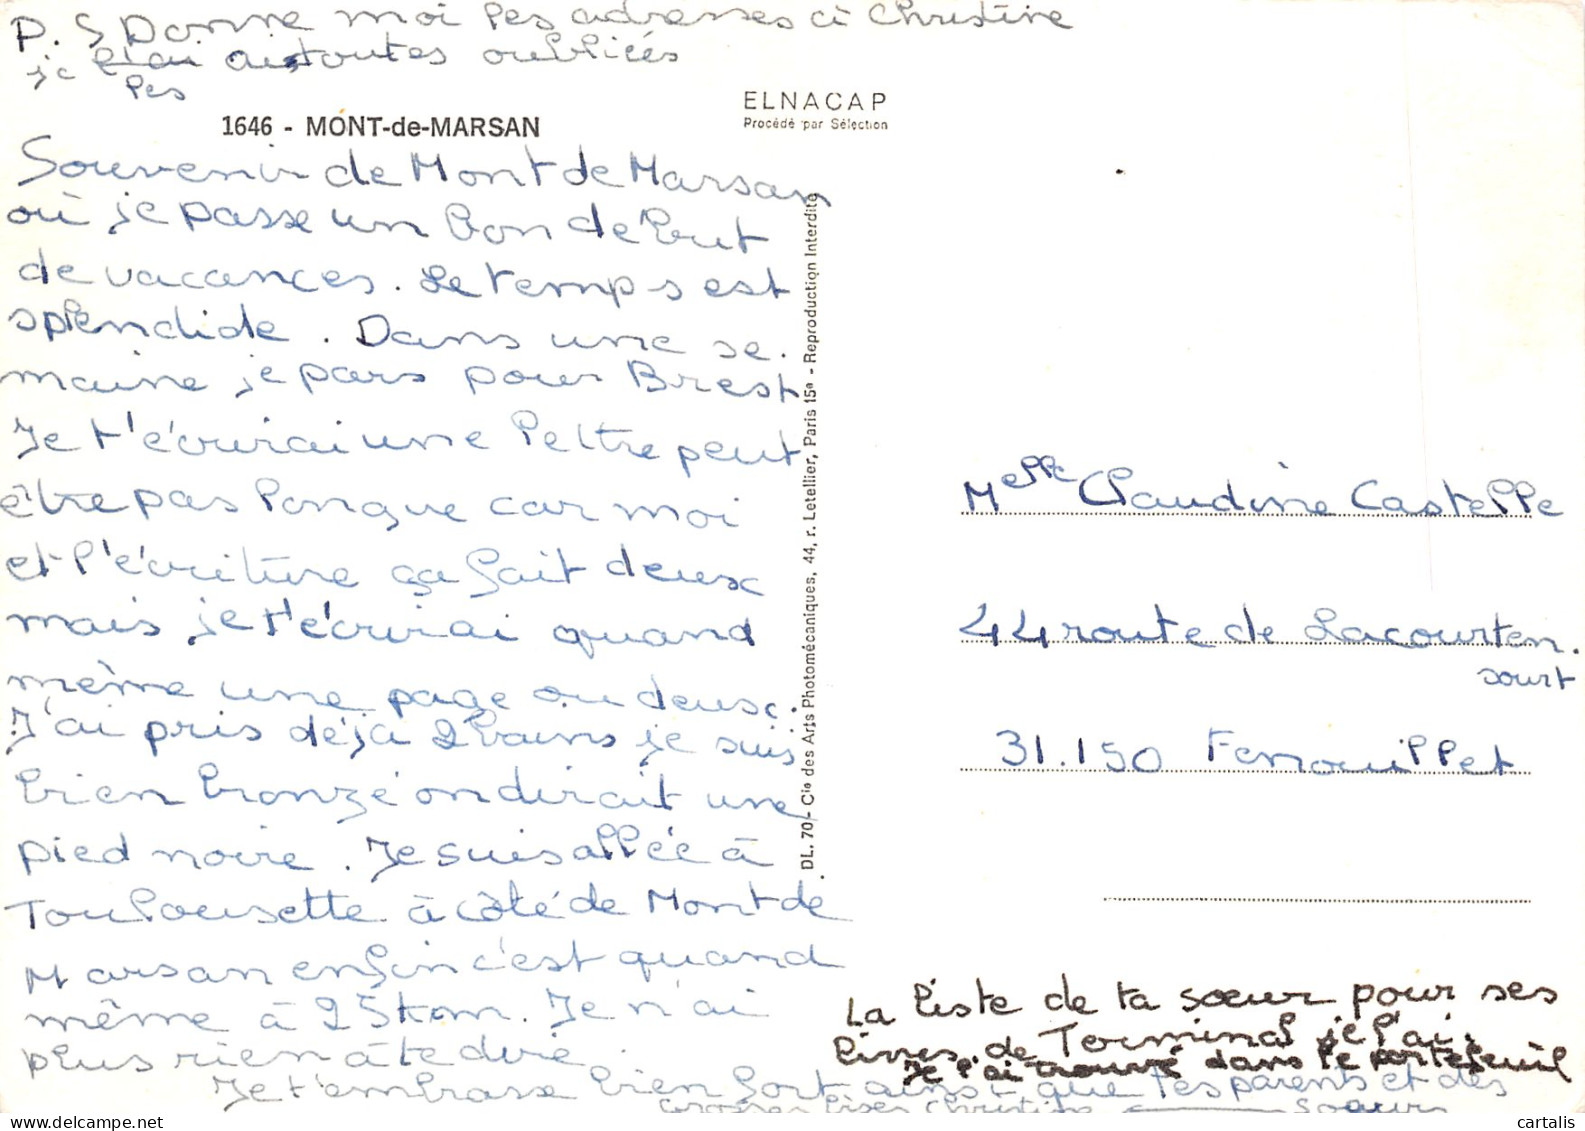 P.S Donne moi les adresses à Christine
je l'ai as toutes oubliées
les
1646 - MONT-de-MARSAN
ELNACAP
Procédé par Sélection
Souvenir de Mont de Marsan
où je passe un bon début
de vacances. Le temps est
splendide. Dans une se.
maine je pars pour Brest
Je t'écrirai une lettre peut
être pas longue car moi
et l'écriture ça fait deux
mais je t'écrirai quand
même une page ou deux.
J'ai pris déjà 2 bains je suis
bien bronzé on dirait une
pied noire. Je suis allée à
Toulousette à côté de Mont de
Marsan enfin c'est quand
même à 25 km. Je n'ai
plus rien à te dire.
Je t'embrasse bien fort ainsi que tes parents et des
soeurs
Grosses bises Christine
DL. 70 - Cie des Arts Photomécaniques, 44, r. Letellier, Paris 15e - Reproduction Interdite
Melle Claudine Castelle
44 route de Lacourten.
sourt
31.150 Fenouillet
La liste de ta soeur pour ses
livres de Terminal je l'ai.
Je l'ai trouvé dans le portefeuil
cartalis